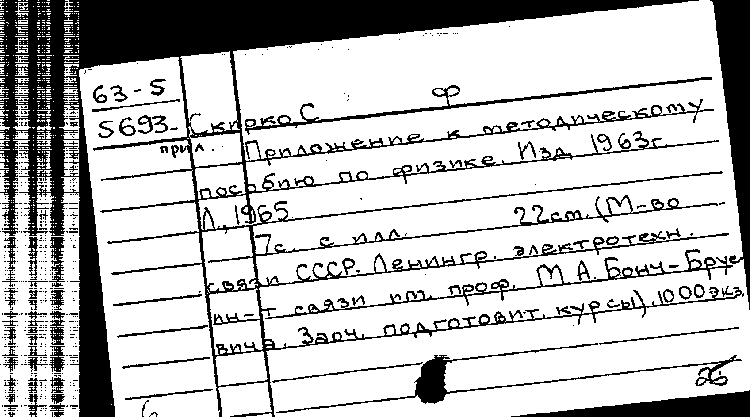 63-5 ф
5693- Скирко, С
прил. Приложение к методическому
пособию по физике. Изд. 1963г.
Л., 1965
7с. с илл. 22см. (М-во
связи СССР. Ленингр. электротехн.
ин-т связи им. проф. М.А. Бонч-Бруе
вича. Заоч. подготовит. курсы). 1000 экз.
26